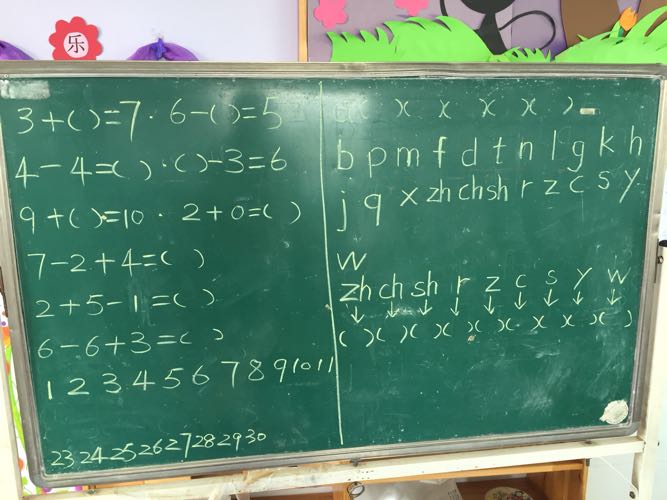 乐
3+( )=7 · 6-( )=5
4-4=( ) · ( )-3=6
9+( )=10 · 2+0=( )
7-2+4=( )
2+5-1=( )
6-6+3=( )
1 2 3 4 5 6 7 8 9 10 11
23 24 25 26 27 28 29 30
b p m f d t n l g k h
j q x zh ch sh r z c s y
w
zh ch sh r z c s y w
↓ ↓ ↓ ↓ ↓ ↓ ↓ ↓ ↓
( )( )( )( )( )( )( )( )( )